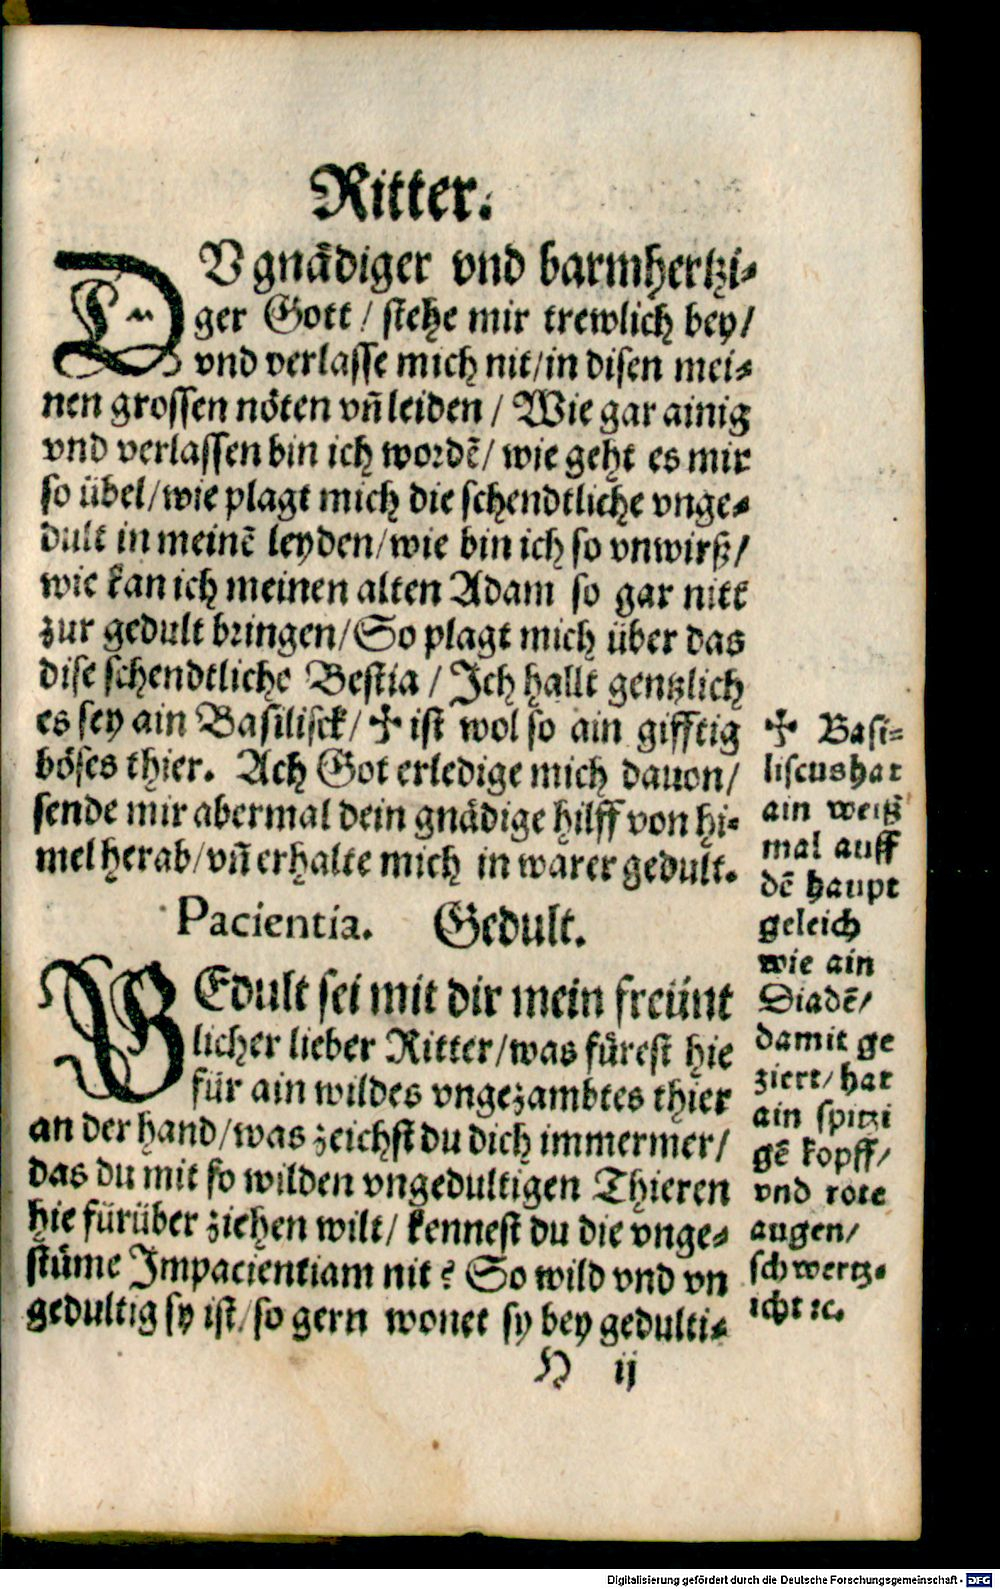 Ritter.
DV gnädiger vnd barmhertzi-
ger Gott / stehe mir trewlich bey/
vnd verlasse mich nit/in disen mei-
nen grossen nöten vñ leiden / Wie gar ainig
vnd verlassen bin ich wordẽ/ wie geht es mir
so übel/wie plagt mich die schendtliche vnge-
dult in meinẽ leyden/wie bin ich so vnwirß/
wie kan ich meinen alten Adam so gar nitt
zur gedult bringen/So plagt mich über das
dise schendtliche Bestia / Ich hallt gentzlich
es sey ain Basilisck/ ✢ ist wol so ain gifftig
böses thier. Ach Got erledige mich dauon/
sende mir abermal dein gnädige hilff von hi-
mel herab/vñ erhalte mich in warer gedult.
Pacientia. Gedult.
GEdult sei mit dir mein freünt
licher lieber Ritter/was fürest hie
für ain wildes vngezambtes thier
an der hand/was zeichst du dich immermer/
das du mit so wilden vngedultigen Thieren
hie fürüber ziehen wilt/ kennest du die vnge-
stüme Impacientiam nit? So wild vnd vn
gedultig sy ist/so gern wonet sy bey gedulti-
H ij
✢ Basi-
liscus hat
ain weiß
mal auff
dẽ haupt
geleich
wie ain
Diadẽ/
damit ge
ziert/ hat
ain spitzi
gẽ kopff/
vnd rote
augen/
schwertz-
icht ꝛc.
Digitalisierung gefördert durch die Deutsche Forschungsgemeinschaft - DFG